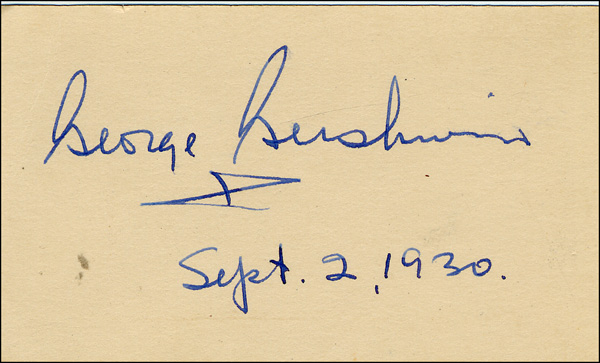 George Gershwin
Sept. 2, 1930.